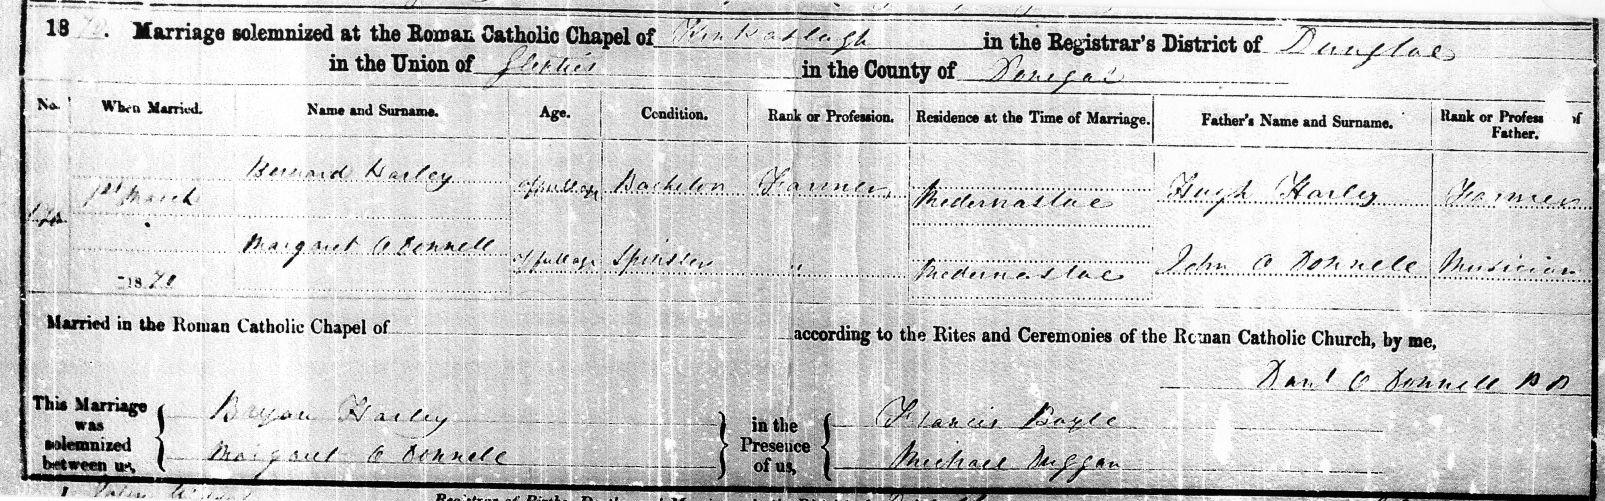 1870. Marriage solemnized at the Roman Catholic Chapel of Kincaslagh in the Registrar's District of Dungloe
in the Union of Glenties in the County of Donegal
No. When Married. Name and Surname. Age. Condition. Rank or Profession. Residence at the Time of Marriage. Father's Name and Surname. Rank or Profess of Father.
1st March Bernard Harley of full age Bachelor Farmer Hugh Harley Farmer
Margaret O Donnell of full age Spinster " John O Donnell Musician
1870
Married in the Roman Catholic Chapel of according to the Rites and Ceremonies of the Roman Catholic Church, by me,
Danl O Donnell
This Marriage was solemnized between us, Bryan Harley in the Presence of us, Francis Boyle
Margaret O Donnell Michael Duggan